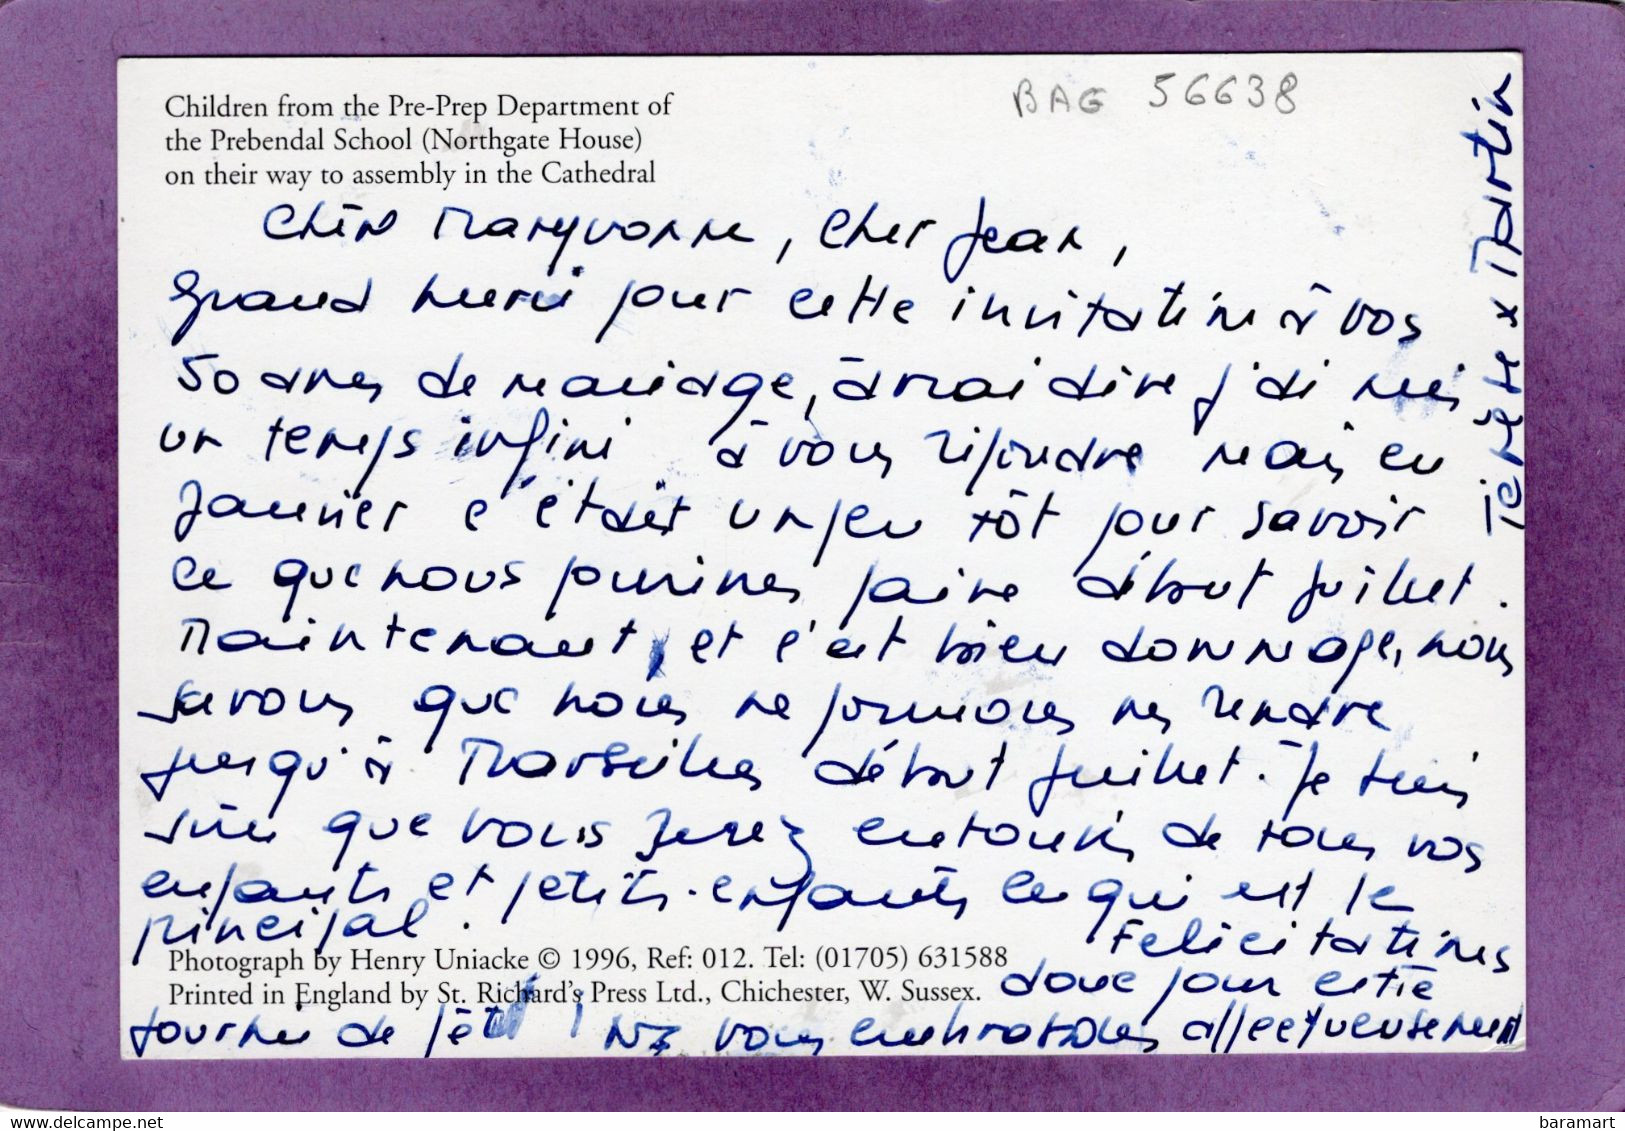 Children from the Pre-Prep Department of
the Prebendal School (Northgate House)
on their way to assembly in the Cathedral
BAG 56638
Chère Maryvonne, Cher Jean,
Grand merci pour cette invitation à vos
50 années de mariage, à vrai dire j'ai mis
un temps infini à vous répondre mais en
Janvier c'était un peu tôt pour savoir
ce que nous pourrions faire début juillet.
Maintenant, et c'est bien dommage, nous
savons que nous ne pouvons nous rendre
jusqu'à Marseille début juillet. Je suis
sûre que vous serez entourés de tous vos
enfants et petits-enfants ce qui est le
principal.
Félicitations
Photograph by Henry Uniacke © 1996, Ref: 012. Tel: (01705) 631588
Printed in England by St. Richard's Press Ltd., Chichester, W. Sussex.
donc pour cette
journée de fête! Nous vous embrassons affectueusement
Martin
baramart